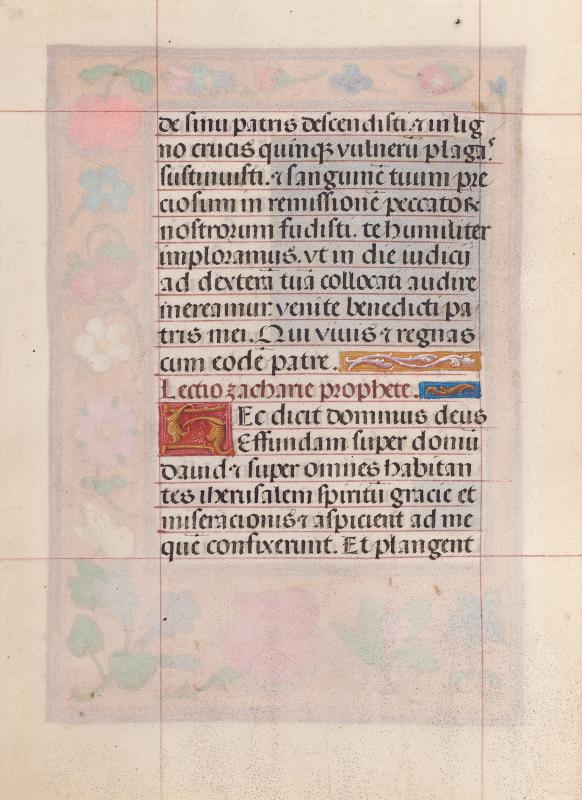 de sinu patris descendisti. ⁊ in lig
no crucis quinqꝫ vulnerū plagas
sustinuisti. ⁊ sanguinē tuum pre
ciosum in remissionē peccatoꝝ
nostrorum fudisti. te humiliter
imploramus. vt in die iudicij
ad dexterā tuā collocati audire
mereamur venite benedicti pa
tris mei. Qui viuis ⁊ regnas
cum eodē patre.
Lectio zacharie prophete.
HEc dicit dominus deus
Effundam super domū
dauid ⁊ super omnes habitan
tes iherusalem spiritū gracie et
miseracionis ⁊ aspicient ad me
quē confixerunt. Et plangent